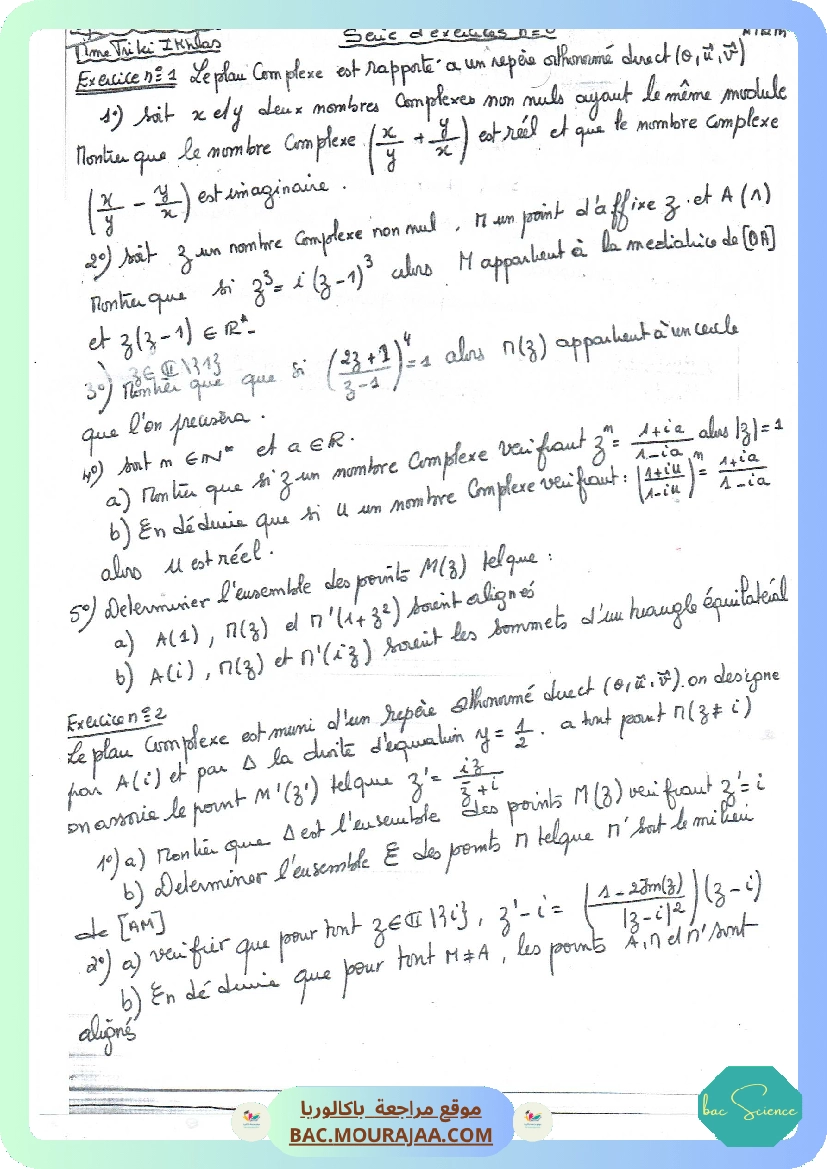 Mme Triki Ikhlas
Série d'exercices n°
Exercice n°1 Le plan Complexe est rapporté a un repère orthonormé direct (o, u⃗, v⃗)
1°) Soit x et y deux nombres Complexes non nuls ayant le même module
Montrer que le nombre Complexe (x/y + y/x) est réel et que le nombre Complexe
(x/y − y/x) est imaginaire.
2°) Soit z un nombre Complexe non nul, M un point d'affixe z et A(1)
Montrer que si z³ = i(z−1)³ alors M appartient à la mediatrice de [OA]
et z(z−1) ∈ ℝ*-
z ∈ ℂ\{1}
3°) Montrer que que si ((2z+1)/(z−1))⁴ = 1 alors M(z) appartient à un cercle
que l'on precisera.
4°) Soit n ∈ ℕ* et a ∈ ℝ.
a) Montrer que si z un nombre Complexe verifiant zⁿ = (1+ia)/(1−ia) alors |z| = 1
b) En déduire que si u un nombre Complexe verifiant : ((1+iu)/(1−iu))ⁿ = (1+ia)/(1−ia)
alors u est réel.
5°) Determiner l'ensemble des points M(z) tel que :
a) A(1), M(z) et M'(1+z²) soient alignés
b) A(i), M(z) et M'(iz) soient les sommets d'un triangle équilatéral
Exercice n°2
Le plan Complexe est muni d'un repère orthonormé direct (o, u⃗, v⃗). on designe
par A(i) et par Δ la droite d'equation y = 1/2. a tout point M(z ≠ i)
on associe le point M'(z') tel que z' = iz̄/(z̄+i)
1°) a) Montrer que Δ est l'ensemble des points M(z) verifiant z' = i
b) Determiner l'ensemble E des points M tel que M' soit le milieu
de [AM]
2°) a) verifier que pour tout z ∈ ℂ\{i}, z'−i = ((1−2Im(z))/|z−i|²)(z−i)
b) En déduire que pour tout M ≠ A, les points A, M et M' sont
alignés
موقع مراجعة باكالوريا
BAC.MOURAJAA.COM
bac Science